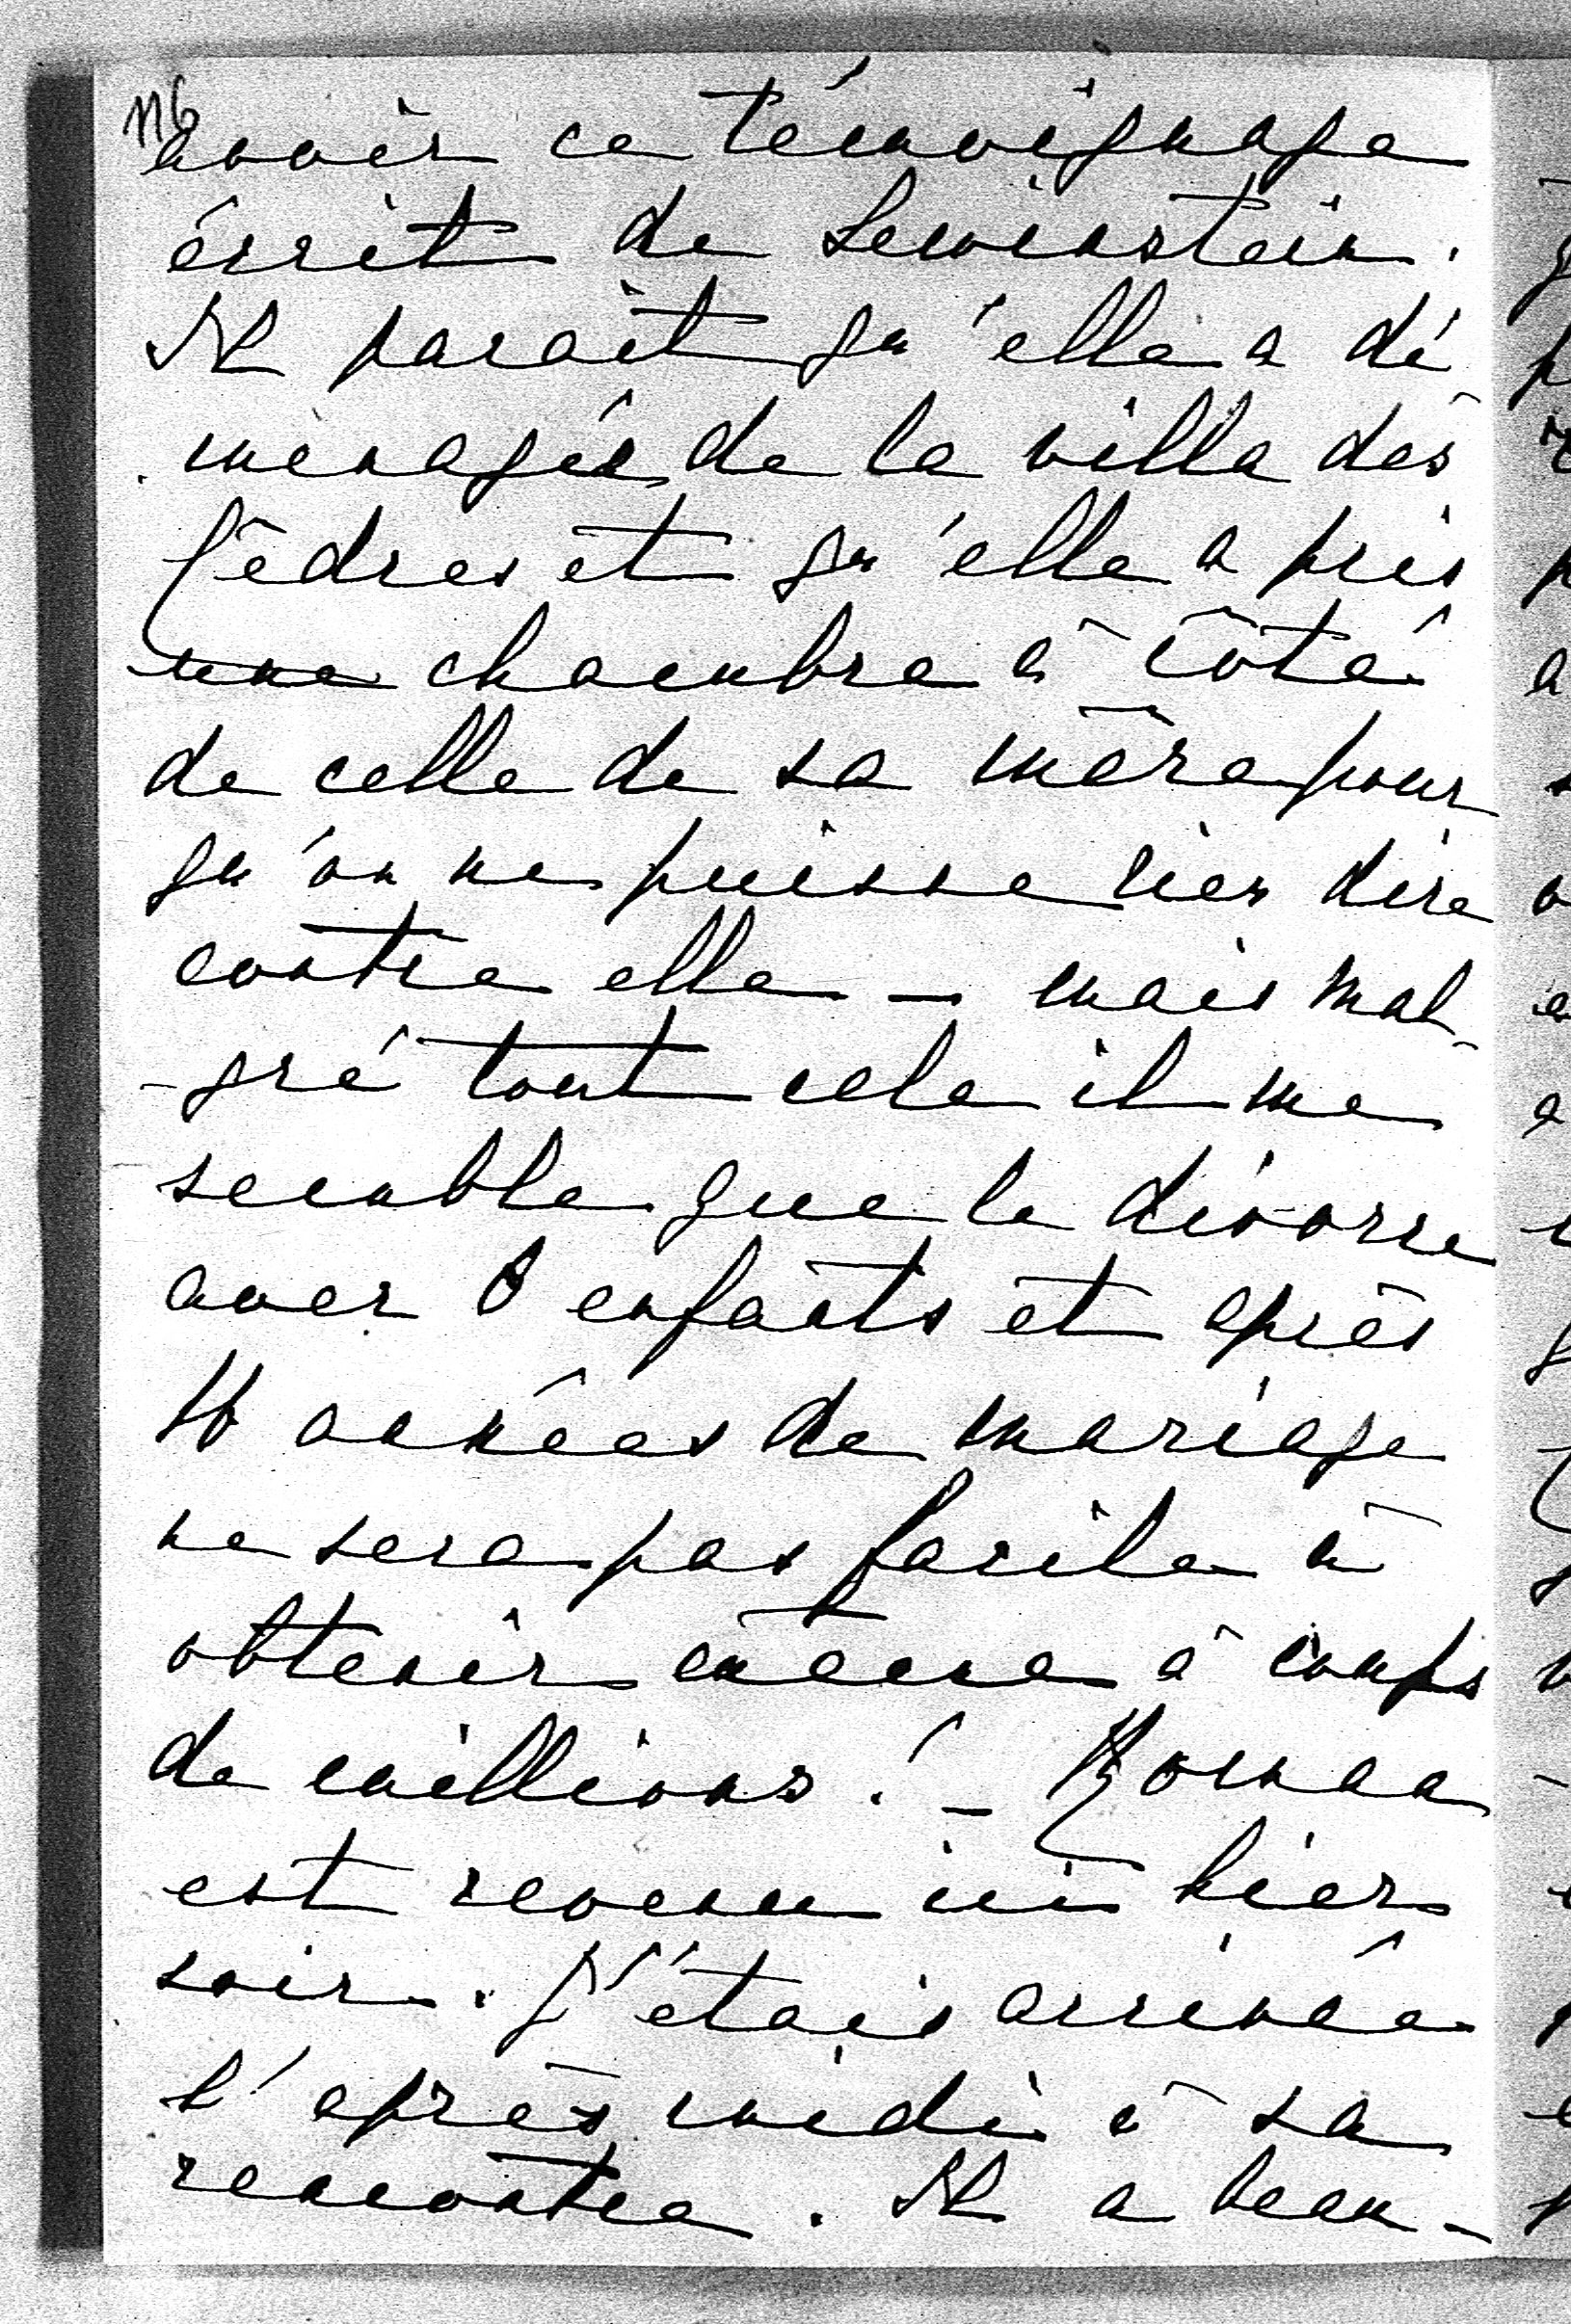 116
avoir ce témoignage
écrit de Lewinstein.
Il parait qu'elle a dé
menagée de la villa des
Cèdres et qu'elle a pris
une chambre à côté
de celle de sa mère pour
qu'on ne puisse rien dire
contre elle – mais mal-
-gré tout cela il me
semble que le divorce
avec 8 enfants et après
16 années de mariage
ne sera pas facile à
obtenir même à coups
de millions! –
est revenu ici hier
soir. J'étais arrivée
l'après midi à sa
rencontre. Il a beau-